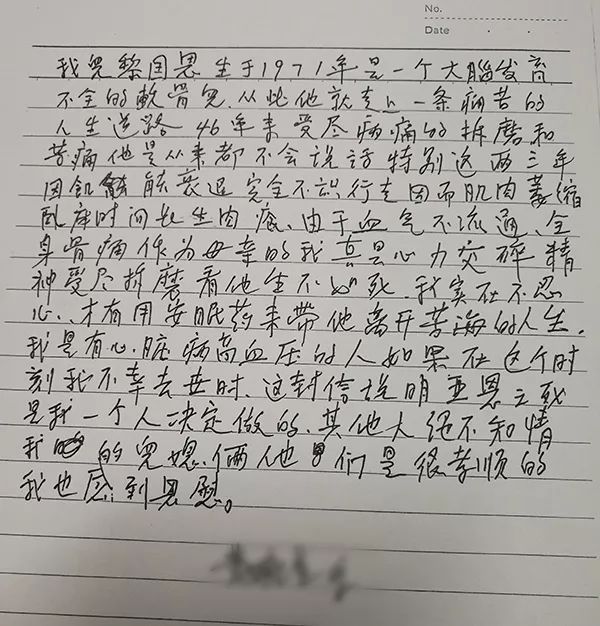 No.
Date
我兒黎国恩生于1971年是一个大腦发育
不全的軟骨兒.从此他就走上一条痛苦的
人生道路46年来受尽病痛的折磨和
苦痛他是从来都不会说話特别这两三年
因飢能衰退完全不识行走因而肌肉萎缩
臥床时间长生肉瘡、由于血气不流通、全
身骨痛作为母亲的我真是心力交碎精
神受尽折磨看他生不如死.我实在不忍
心、才有用安眠药来带他离开苦海的人生.
我是有心脏病高血压的人如果在这个时
刻我不幸去世时.这封信说明亚恩之死
是我一个人决定做的.其他大绝不知情
我的兒媳.俩他们是很孝顺的
我也感到恩慰。